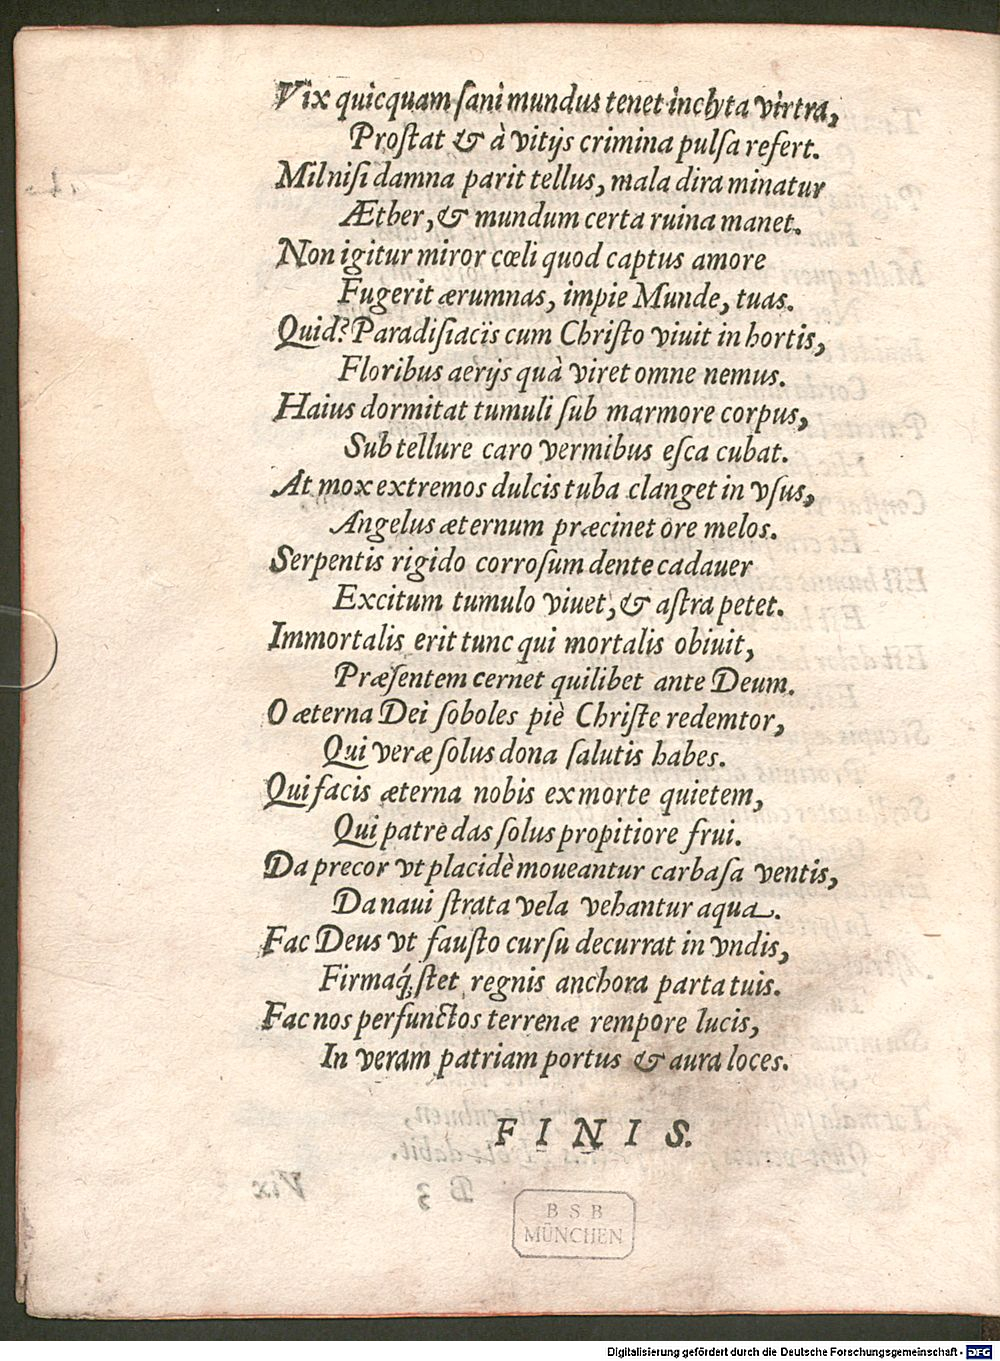 Vix quicquam ſani mundus tenet inclyta virtra,
Proſtat & à vitijs crimina pulſa refert.
Mil niſi damna parit tellus, mala dira minatur
Æther, & mundum certa ruina manet.
Non igitur miror cœli quod captus amore
Fugerit ærumnas, impie Munde, tuas.
Quid? Paradiſiacïs cum Chriſto viuit in hortis,
Floribus aerijs quà viret omne nemus.
Haius dormitat tumuli ſub marmore corpus,
Sub tellure caro vermibus eſca cubat.
At mox extremos dulcis tuba clanget in vſus,
Angelus æternum præcinet ore melos.
Serpentis rigido corroſum dente cadauer
Excitum tumulo viuet, & aſtra petet.
Immortalis erit tunc qui mortalis obiuit,
Præſentem cernet quilibet ante Deum.
O æterna Dei ſoboles piè Chriſte redemtor,
Qui veræ ſolus dona ſalutis habes.
Qui facis æterna nobis ex morte quietem,
Qui patre das ſolus propitiore frui.
Da precor vt placidè moueantur carbaſa ventis,
Da naui ſtrata vela vehantur aqua.
Fac Deus vt fauſto curſu decurrat in vndis,
Firmaq́; ſtet regnis anchora parta tuis.
Fac nos perfunctos terrenæ rempore lucis,
In veram patriam portus & aura loces.
FINIS.
BSB
MÜNCHEN
Digitalisierung gefördert durch die Deutsche Forschungsgemeinschaft - DFG